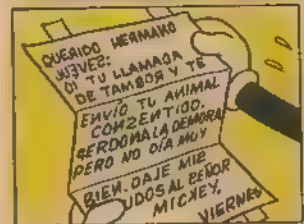 QUERIDO HERMANO
JUEVEZ:
OI TU LLAMADA
DE TAMBOR Y TE
ENVIO TU ANIMAL
CONZENTIDO.
PERDONA LA DEMORA
PERO NO OÍA MUY
BIEN. DAJE MIZ
UDOS AL ZEÑOR
MICKEY.
VIERNES